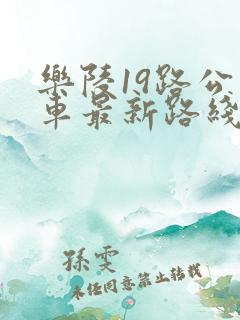 樂陵19路公
車最新路綫
孫雯
未经同意禁止转载